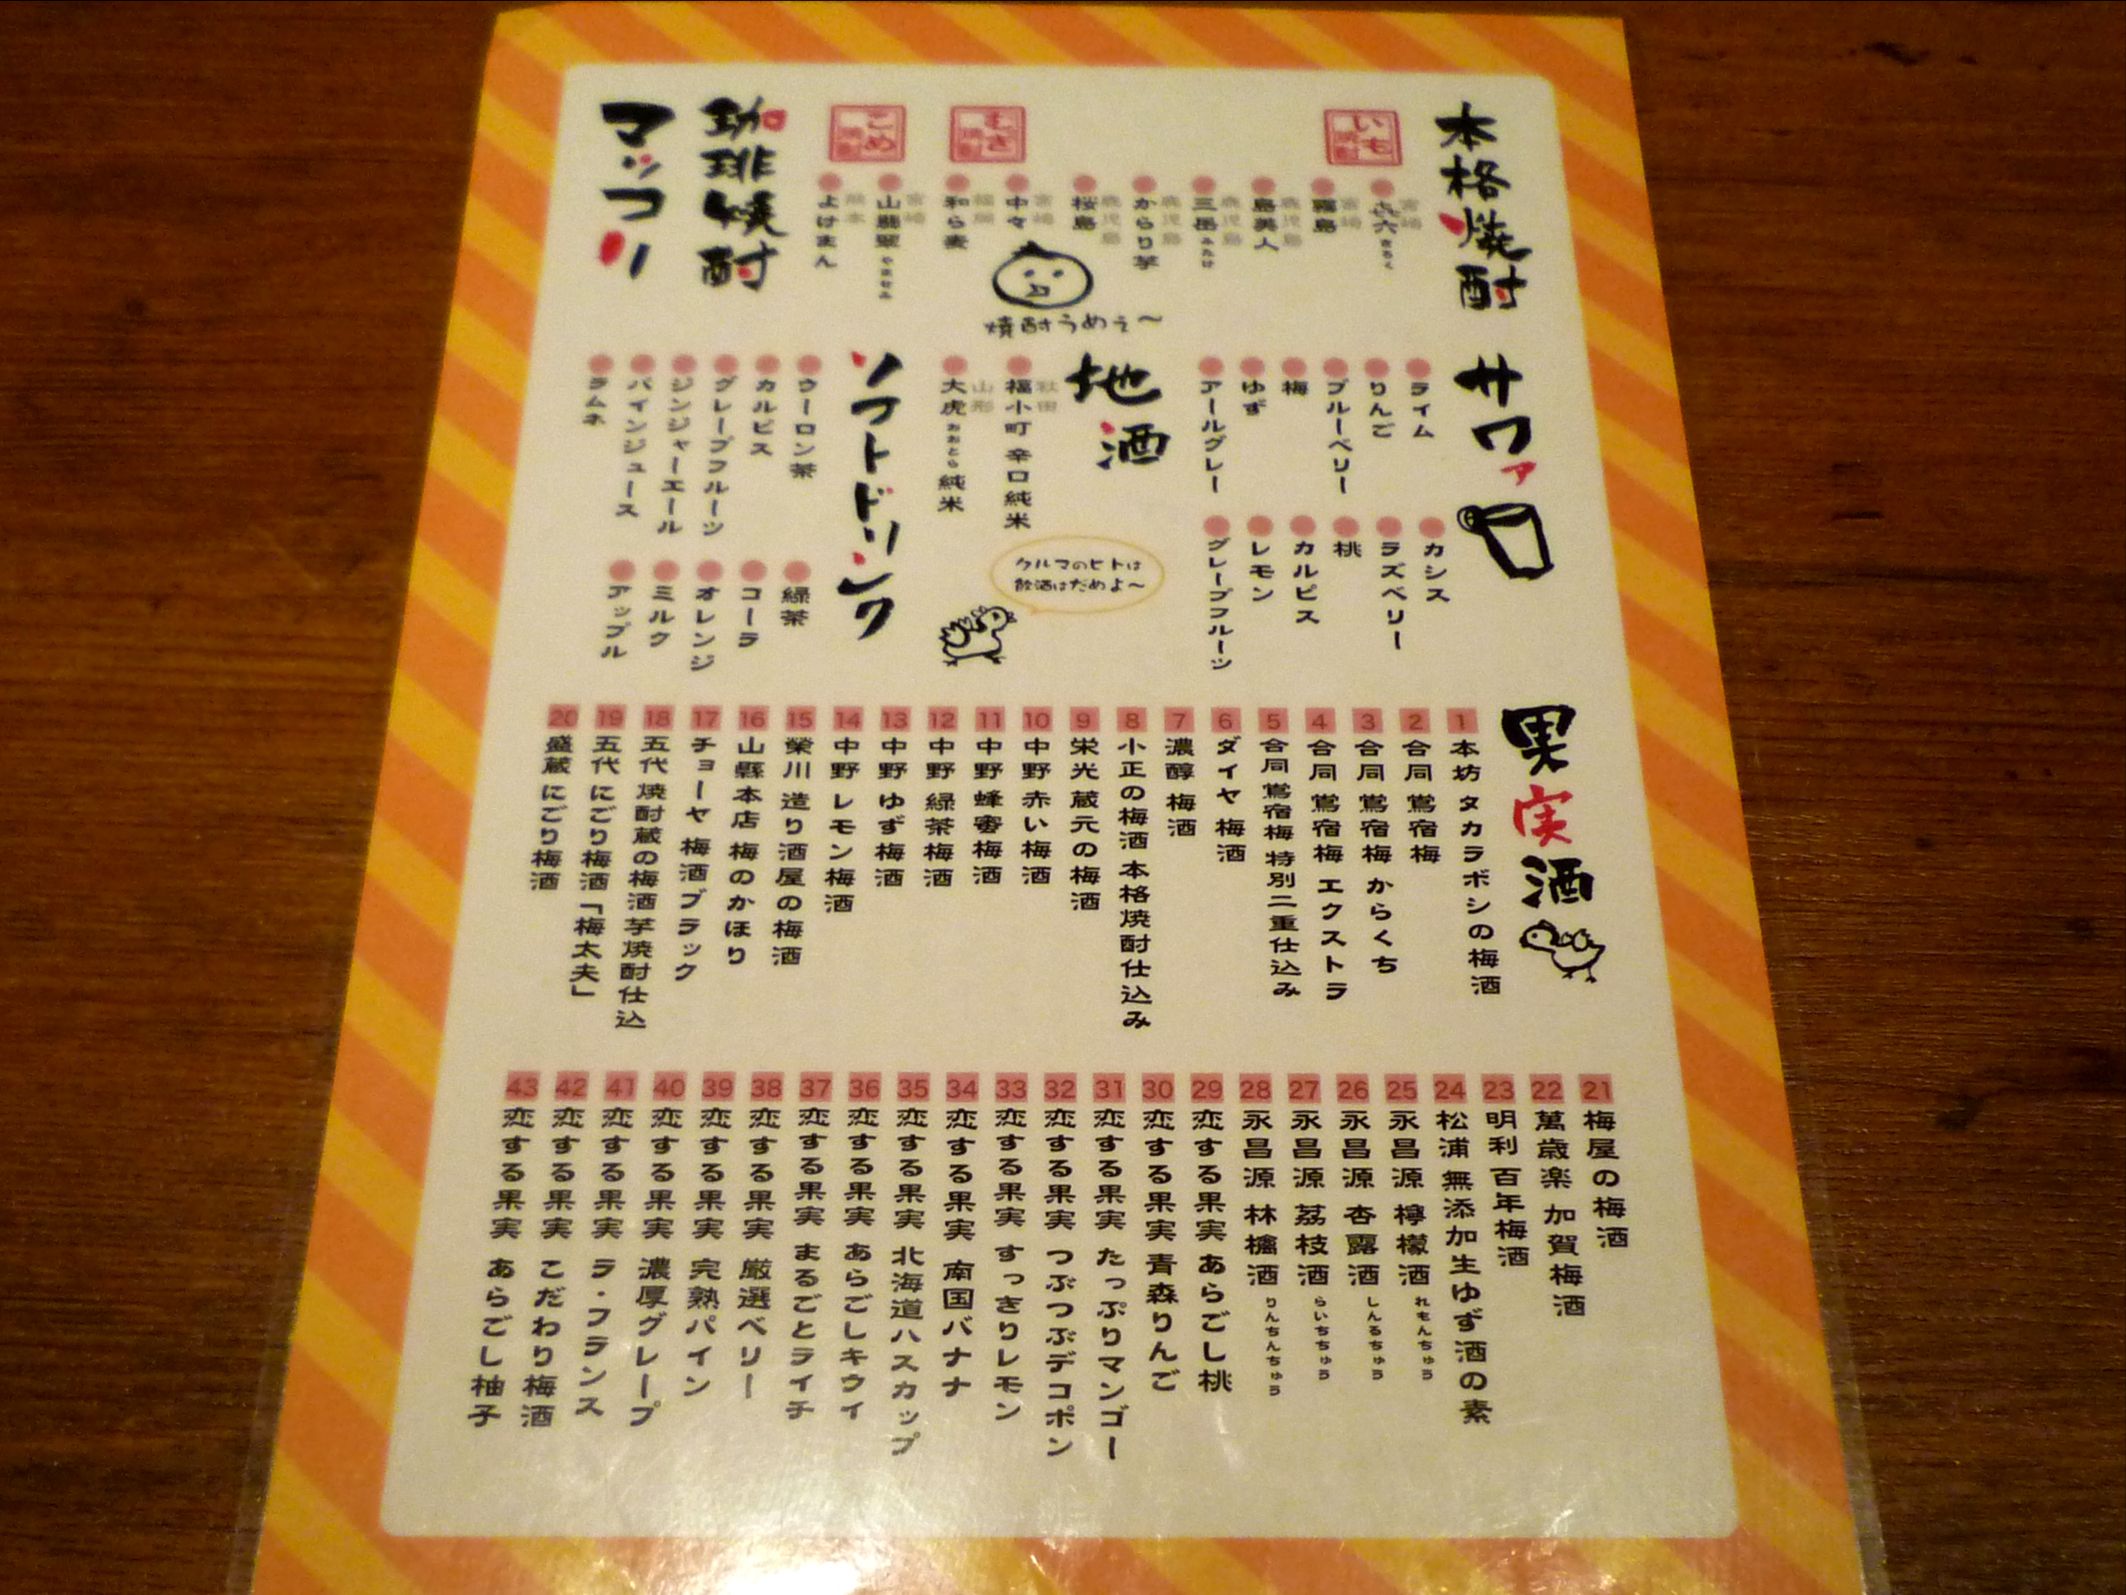 本格焼酎
いも
焼酎
宮崎
㐂六 きろく
宮崎
霧島
鹿児島
島美人
鹿児島
三岳 みたけ
鹿児島
からり芋
鹿児島
桜島
むぎ
焼酎
宮崎
中々
福岡
和ら麦
こめ
焼酎
宮崎
山翡翠 やませみ
熊本
よけまん
焼酎うめぇ〜
珈琲焼酎
マッコリ
サワァ
ライム
りんご
ブルーベリー
梅
ゆず
アールグレー
カシス
ラズベリー
桃
カルピス
レモン
グレープフルーツ
地酒
秋田
福小町 辛口純米
山形
大虎 おおとら 純米
クルマのヒトは
飲酒はだめよ〜
ソフトドリンク
ウーロン茶
カルピス
グレープフルーツ
ジンジャーエール
パインジュース
ラムネ
緑茶
コーラ
オレンジ
ミルク
アップル
果実酒
1 本坊 タカラボシの梅酒
2 合同 鶯宿梅
3 合同 鶯宿梅 からくち
4 合同 鶯宿梅 エクストラ
5 合同 鶯宿梅 特別二重仕込み
6 ダイヤ 梅酒
7 濃醇 梅酒
8 小正の梅酒 本格焼酎仕込み
9 栄光 蔵元の梅酒
10 中野 赤い梅酒
11 中野 蜂蜜梅酒
12 中野 緑茶梅酒
13 中野 ゆず梅酒
14 中野 レモン梅酒
15 榮川 造り酒屋の梅酒
16 山縣本店 梅のかほり
17 チョーヤ 梅酒ブラック
18 五代 焼酎蔵の梅酒芋焼酎仕込
19 五代 にごり梅酒「梅太夫」
20 盛蔵 にごり梅酒
21 梅屋の梅酒
22 萬歳楽 加賀梅酒
23 明利 百年梅酒
24 松浦 無添加生ゆず酒の素
25 永昌源 檸檬酒 れもんちゅう
26 永昌源 杏露酒 しんるちゅう
27 永昌源 荔枝酒 らいちちゅう
28 永昌源 林檎酒 りんちんちゅう
29 恋する果実 あらごし桃
30 恋する果実 青森りんご
31 恋する果実 たっぷりマンゴー
32 恋する果実 つぶつぶデコポン
33 恋する果実 すっきりレモン
34 恋する果実 南国バナナ
35 恋する果実 北海道ハスカップ
36 恋する果実 あらごしキウイ
37 恋する果実 まるごとライチ
38 恋する果実 厳選ベリー
39 恋する果実 完熟パイン
40 恋する果実 濃厚グレープ
41 恋する果実 ラ・フランス
42 恋する果実 こだわり梅酒
43 恋する果実 あらごし柚子